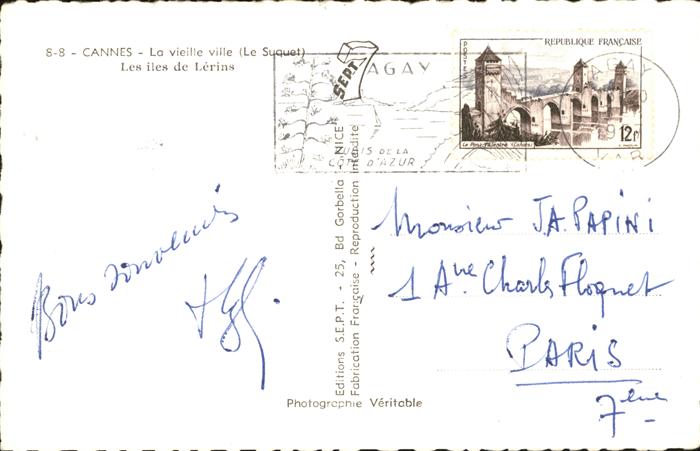 8-8 - CANNES - La vieille ville (Le Suquet)
Les îles de Lérins
SEPT.
AGAY
DE LA
CÔTE D'AZUR
POSTES
REPUBLIQUE FRANÇAISE
12F
Le Pont Valentré (Cahors)
AGAY
VAR
Bons souvenirs
Monsieur J.A. PAPINI
1 Ave Charles Floquet
PARIS
7ème
Editions S.E.P.T. - 25, Bd Gorbella - NICE
Fabrication Française - Reproduction interdite
Photographie Véritable